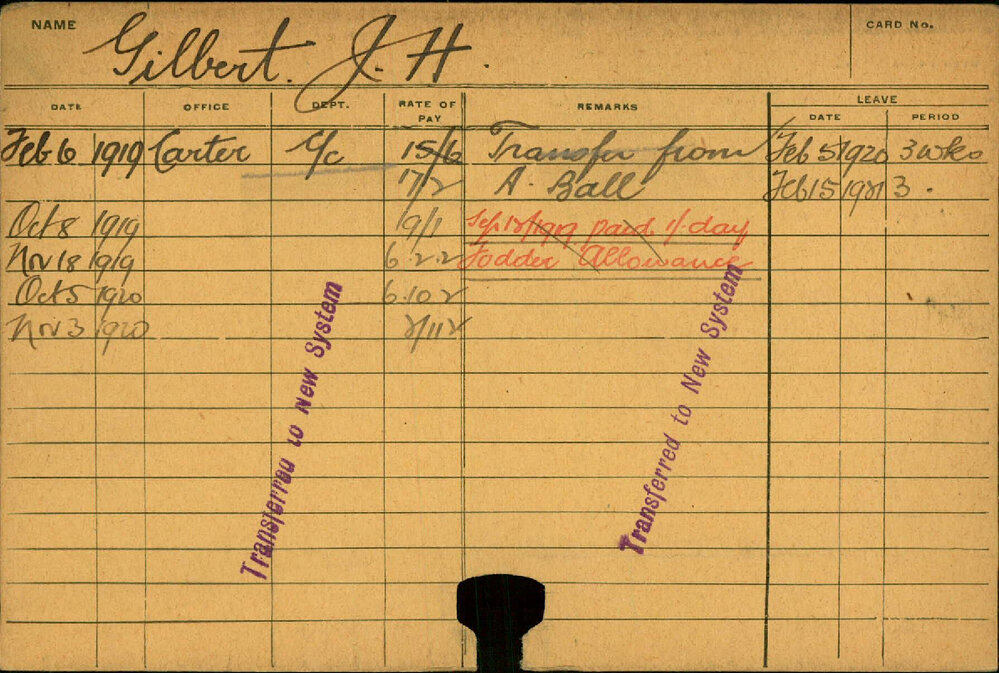 NAME Gilbert. J. H. CARD No.
DATE OFFICE DEPT. RATE OF PAY REMARKS LEAVE
DATE PERIOD
Feb 6 1919 Carter C/c 15/6 Transfer from Feb 5 1920 3 wks
17/2 A. Ball Feb 15 1921 3.
Oct 8 1919 19/1 Sep 18/1919 paid 1/- day
Nov 18 1919 6.2.2 Fodder Allowance
Oct 5 1920 6.10.2
Nov 3 1920
Transferred to New System
Transferred to New System